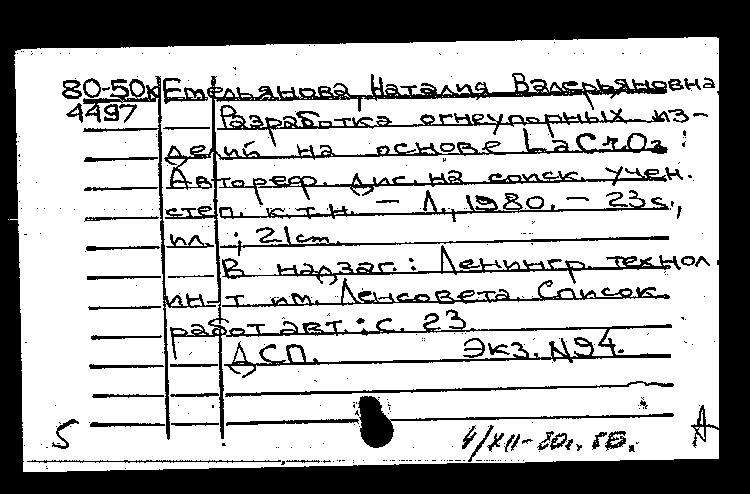 80-50к Емельянова, Наталия Валерьяновна
4497 Разработка огнеупорных из-
делий на основе LaCrO3 :
Автореф. дис. на соиск. учен.
степ. к.т.н. — Л., 1980. — 23 с.,
ил. ; 21 cm.
В надзаг.: Ленингр. технол.
ин-т им. Ленсовета. Список
работ авт. : с. 23
ДСП. Экз. N94.
5 4/XII-80г. А